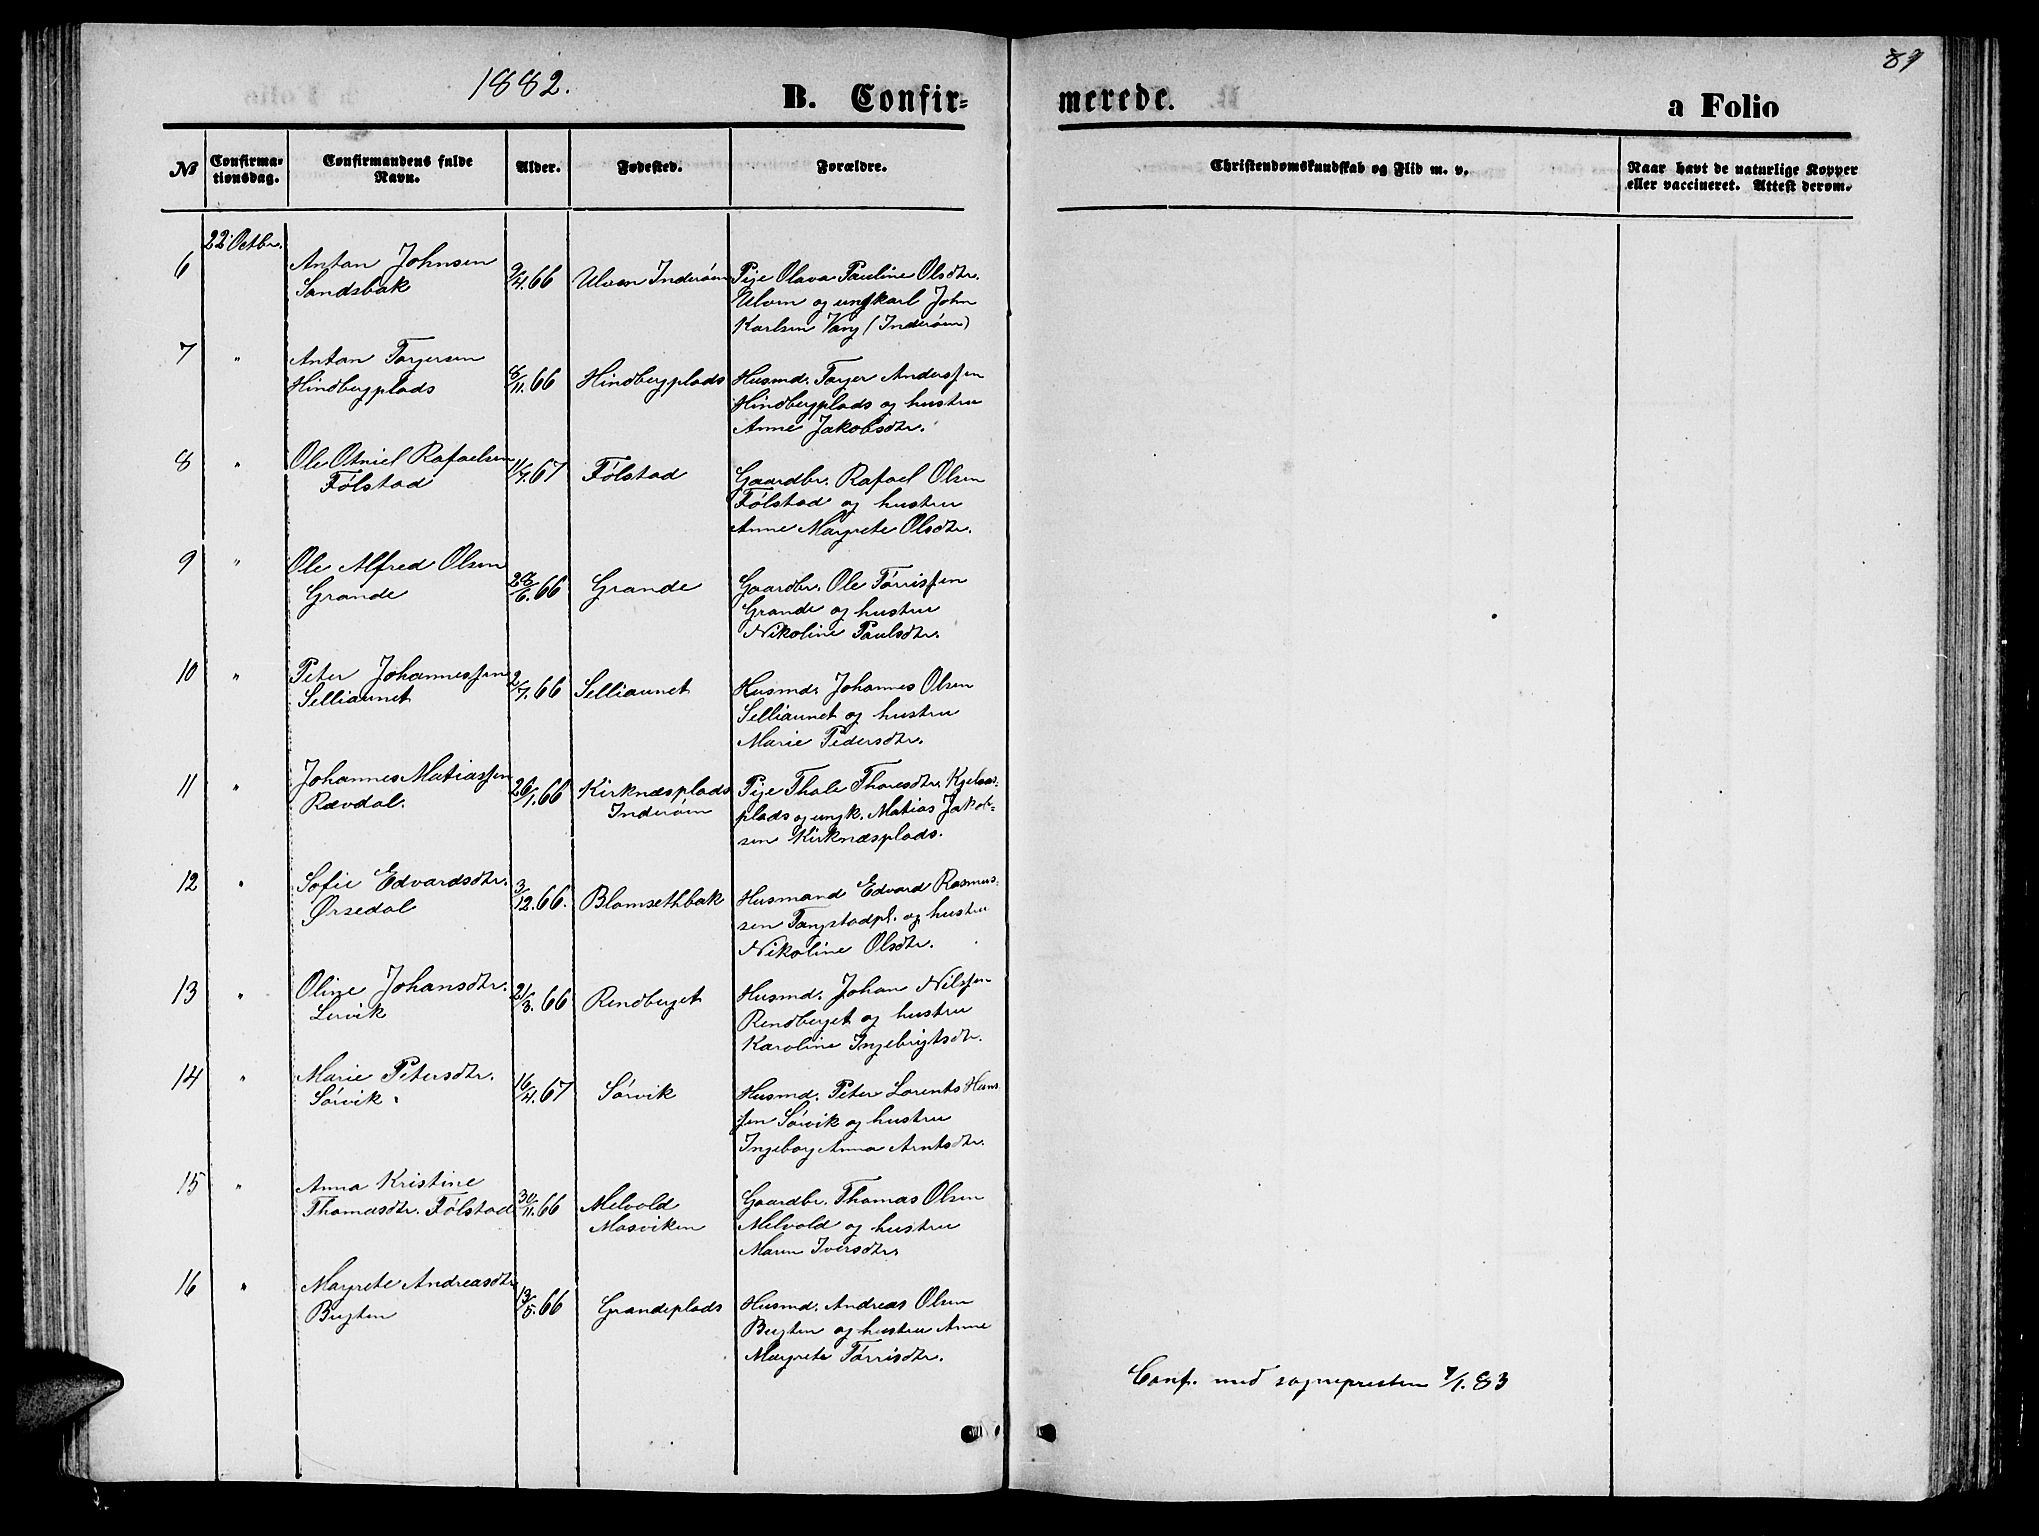 1882.
B. Confir=
merede.
a Folio
89
No
Confirma-
tionsdag.
Confirmandens fulde
Navn.
Alder.
Fødested.
Forældre.
Christendomskundskab og Flid m. v.
Naar havt de naturlige Kopper
eller vaccineret. Attest derom.
6
22 Octbr.
Anton Johnsen
Sandsbak
9/4.66
Ulven Inderøen
Pige Olava Pauline Olsdtr.
Ulven og ungkarl John
Karlsen Vang (Inderøen)
7
"
Anton Torgersen
Hindbergplads
8/11.66
Hindbergplads
Husmd. Torger Anderssen
Hindbergplads og hustru
Anne Jakobsdtr.
8
"
Ole Otniel Rafaelsen
Følstad
11/7.67
Følstad
Gaardbr. Rafael Olsen
Følstad og hustru
Anne Margrete Olsdtr.
9
"
Ole Alfred Olsen
Grande
Grande
Gaardbr. Ole Tørrissen
Grande og hustru
Nikoline Paulsdtr.
10
"
Peter Johannessen
Selliaunet
2/7.66
Selliaunet
Husmd. Johannes Olsen
Selliaunet og hustru
Marie Pedersdtr.
11
"
Johannes Matiassen
Rævdal.
26/1.66
Kirknæsplads
Inderøen
Pige Thale Thoresdtr.
plads og ungk. Matias Jakob-
sen Kirknæsplads.
12
"
Sofie Edvardsdtr.
Ørsedal
3/12.66.
Blomsethbak
Husmand Edvard Rasmus-
sen Tangstadpl. og hustru
Nikoline Olsdtr.
13
"
Oline Johansdtr.
Lervik
21/3.66
Rendberget
Husmd. Johan Nilssen
Rendberget og hustru
Karoline Ingebrigtsdtr.
14
"
Marie Petersdtr.
Sørvik.
16/4.67
Sørvik
Husmd. Peter Lorents Hans
sen Sørvik og hustru
Ingeborg Anna Arntsdtr.
15
"
Anna Kristine
Thomasdtr. Følstad
30/11.66
Melvold
Mosviken
Gaardbr. Thomas Olsen
Melvold og hustru
Maren Iversdtr.
16
"
Margrete Andreasdtr
Bugten
13/5.66
Grandeplads
Husmd. Andreas Olsen
Bugten og hustru Anne
Margrete Tørrisdtr.
Conf. med sognepresten 7/1.83